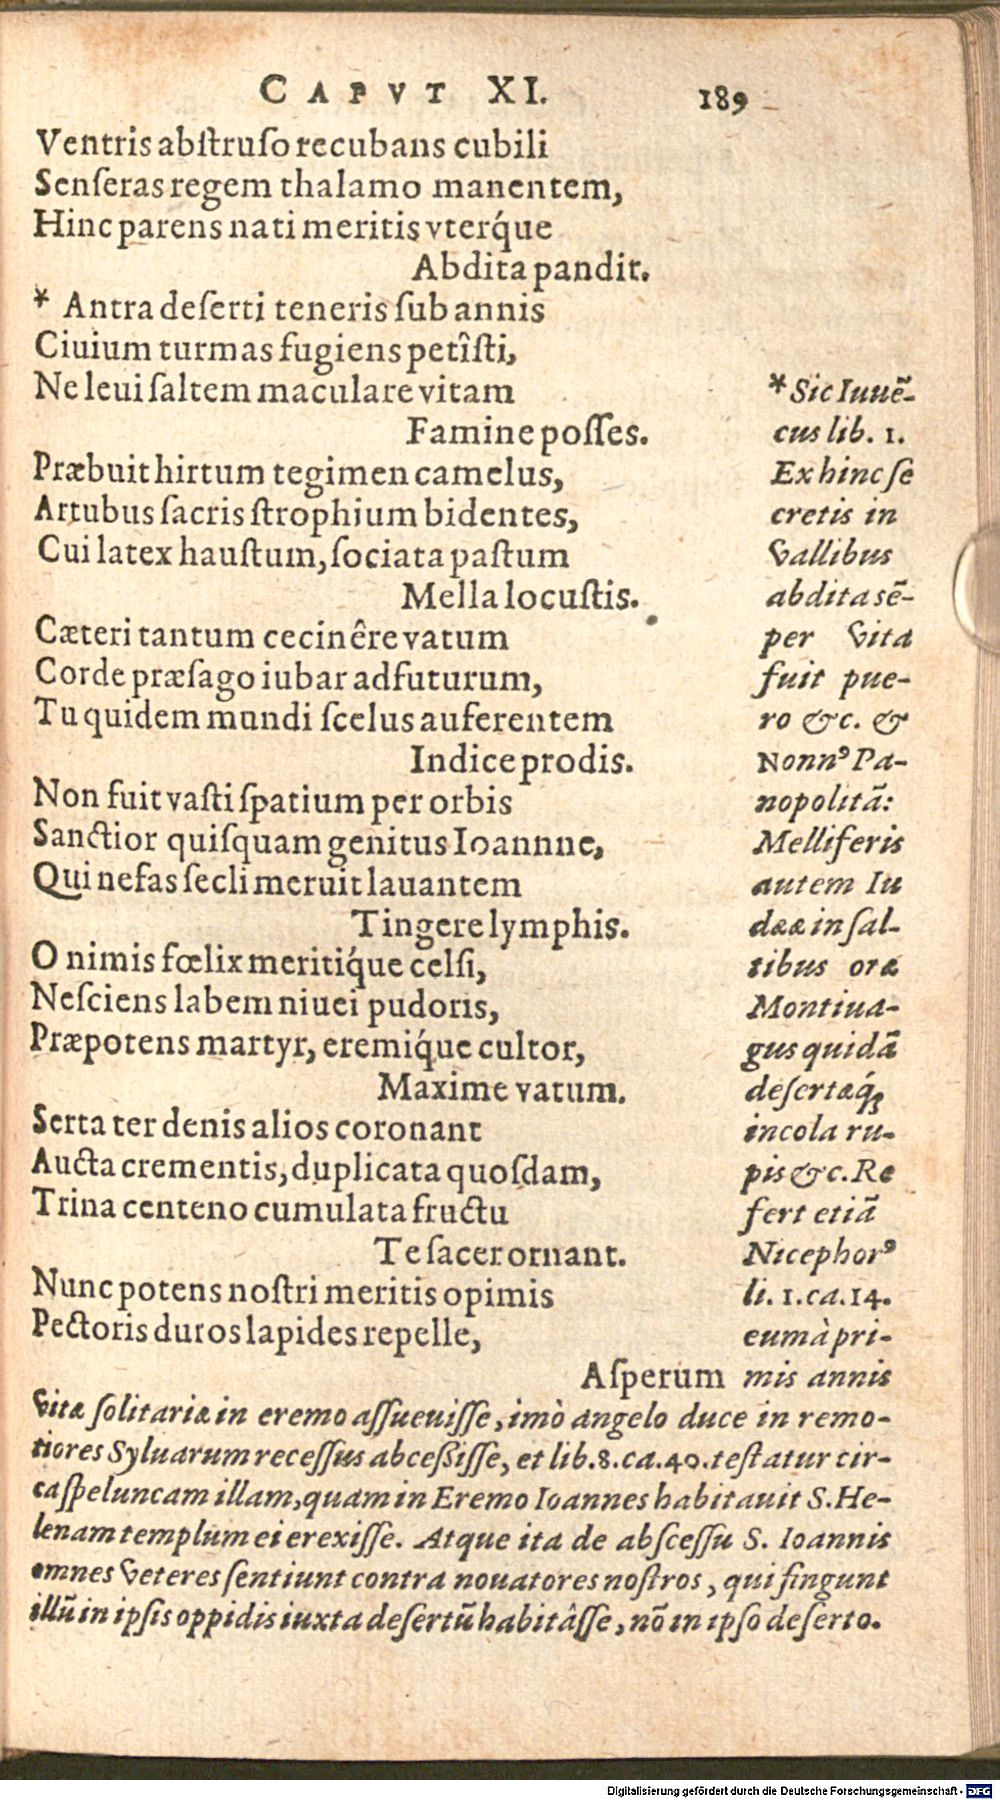 CAPVT XI. 189
Ventris abſtruſo recubans cubili
Senſeras regem thalamo manentem,
Hinc parens nati meritis vterq́ue
Abdita pandit.
* Antra deſerti teneris ſub annis
Ciuium turmas fugiens petîſti,
Ne leui ſaltem maculare vitam
Famine poſſes.
Præbuit hirtum tegimen camelus,
Artubus ſacris ſtrophium bidentes,
Cui latex hauſtum, ſociata paſtum
Mella locuſtis.
Cæteri tantum cecinêre vatum
Corde præſago iubar adfuturum,
Tu quidem mundi ſcelus auferentem
Indice prodis.
Non fuit vaſti ſpatium per orbis
Sanctior quiſquam genitus Ioannne,
Qui nefas ſecli meruit lauantem
Tingere lymphis.
O nimis fœlix meritiq́ue celſi,
Neſciens labem niuei pudoris,
Præpotens martyr, eremiq́ue cultor,
Maxime vatum.
Serta ter denis alios coronant
Aucta crementis, duplicata quoſdam,
Trina centeno cumulata fructu
Te ſacer ornant.
Nunc potens noſtri meritis opimis
Pectoris duros lapides repelle,
Aſperum
* Sic Iuuẽ-
cus lib. 1.
Exhinc ſe
cretis in
vallibus
abdita sẽ-
per vita
fuit pue-
ro &c. &
Nonnꝰ Pa-
nopolitã:
Melliferis
autem Iu
dææ in ſal-
tibus oræ
Montiua-
gus quidã
deſertæq́;
incola ru-
pis &c. Re
fert etiã
Nicephorꝰ
li. 1. ca. 14.
eum à pri-
mis annis
vitæ ſolitariæ in eremo aſſueuiſſe, imò angelo duce in remo-
tiores Syluarum receſſus abceßiſſe, et lib. 8. ca. 40. teſtatur cir-
ca ſpeluncam illam, quam in Eremo Ioannes habitauit S. He-
lenam templum ei erexiſſe. Atque ita de abſceſſu S. Ioannis
omnes veteres ſentiunt contra nouatores noſtros, qui fingunt
illũ in ipſis oppidis iuxta deſertũ habitâſſe, nõ in ipſo deſerto.
Digitalisierung gefördert durch die Deutsche Forschungsgemeinschaft - DFG